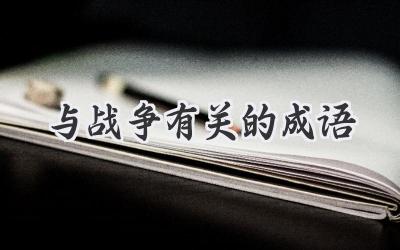 与战争有关的成语